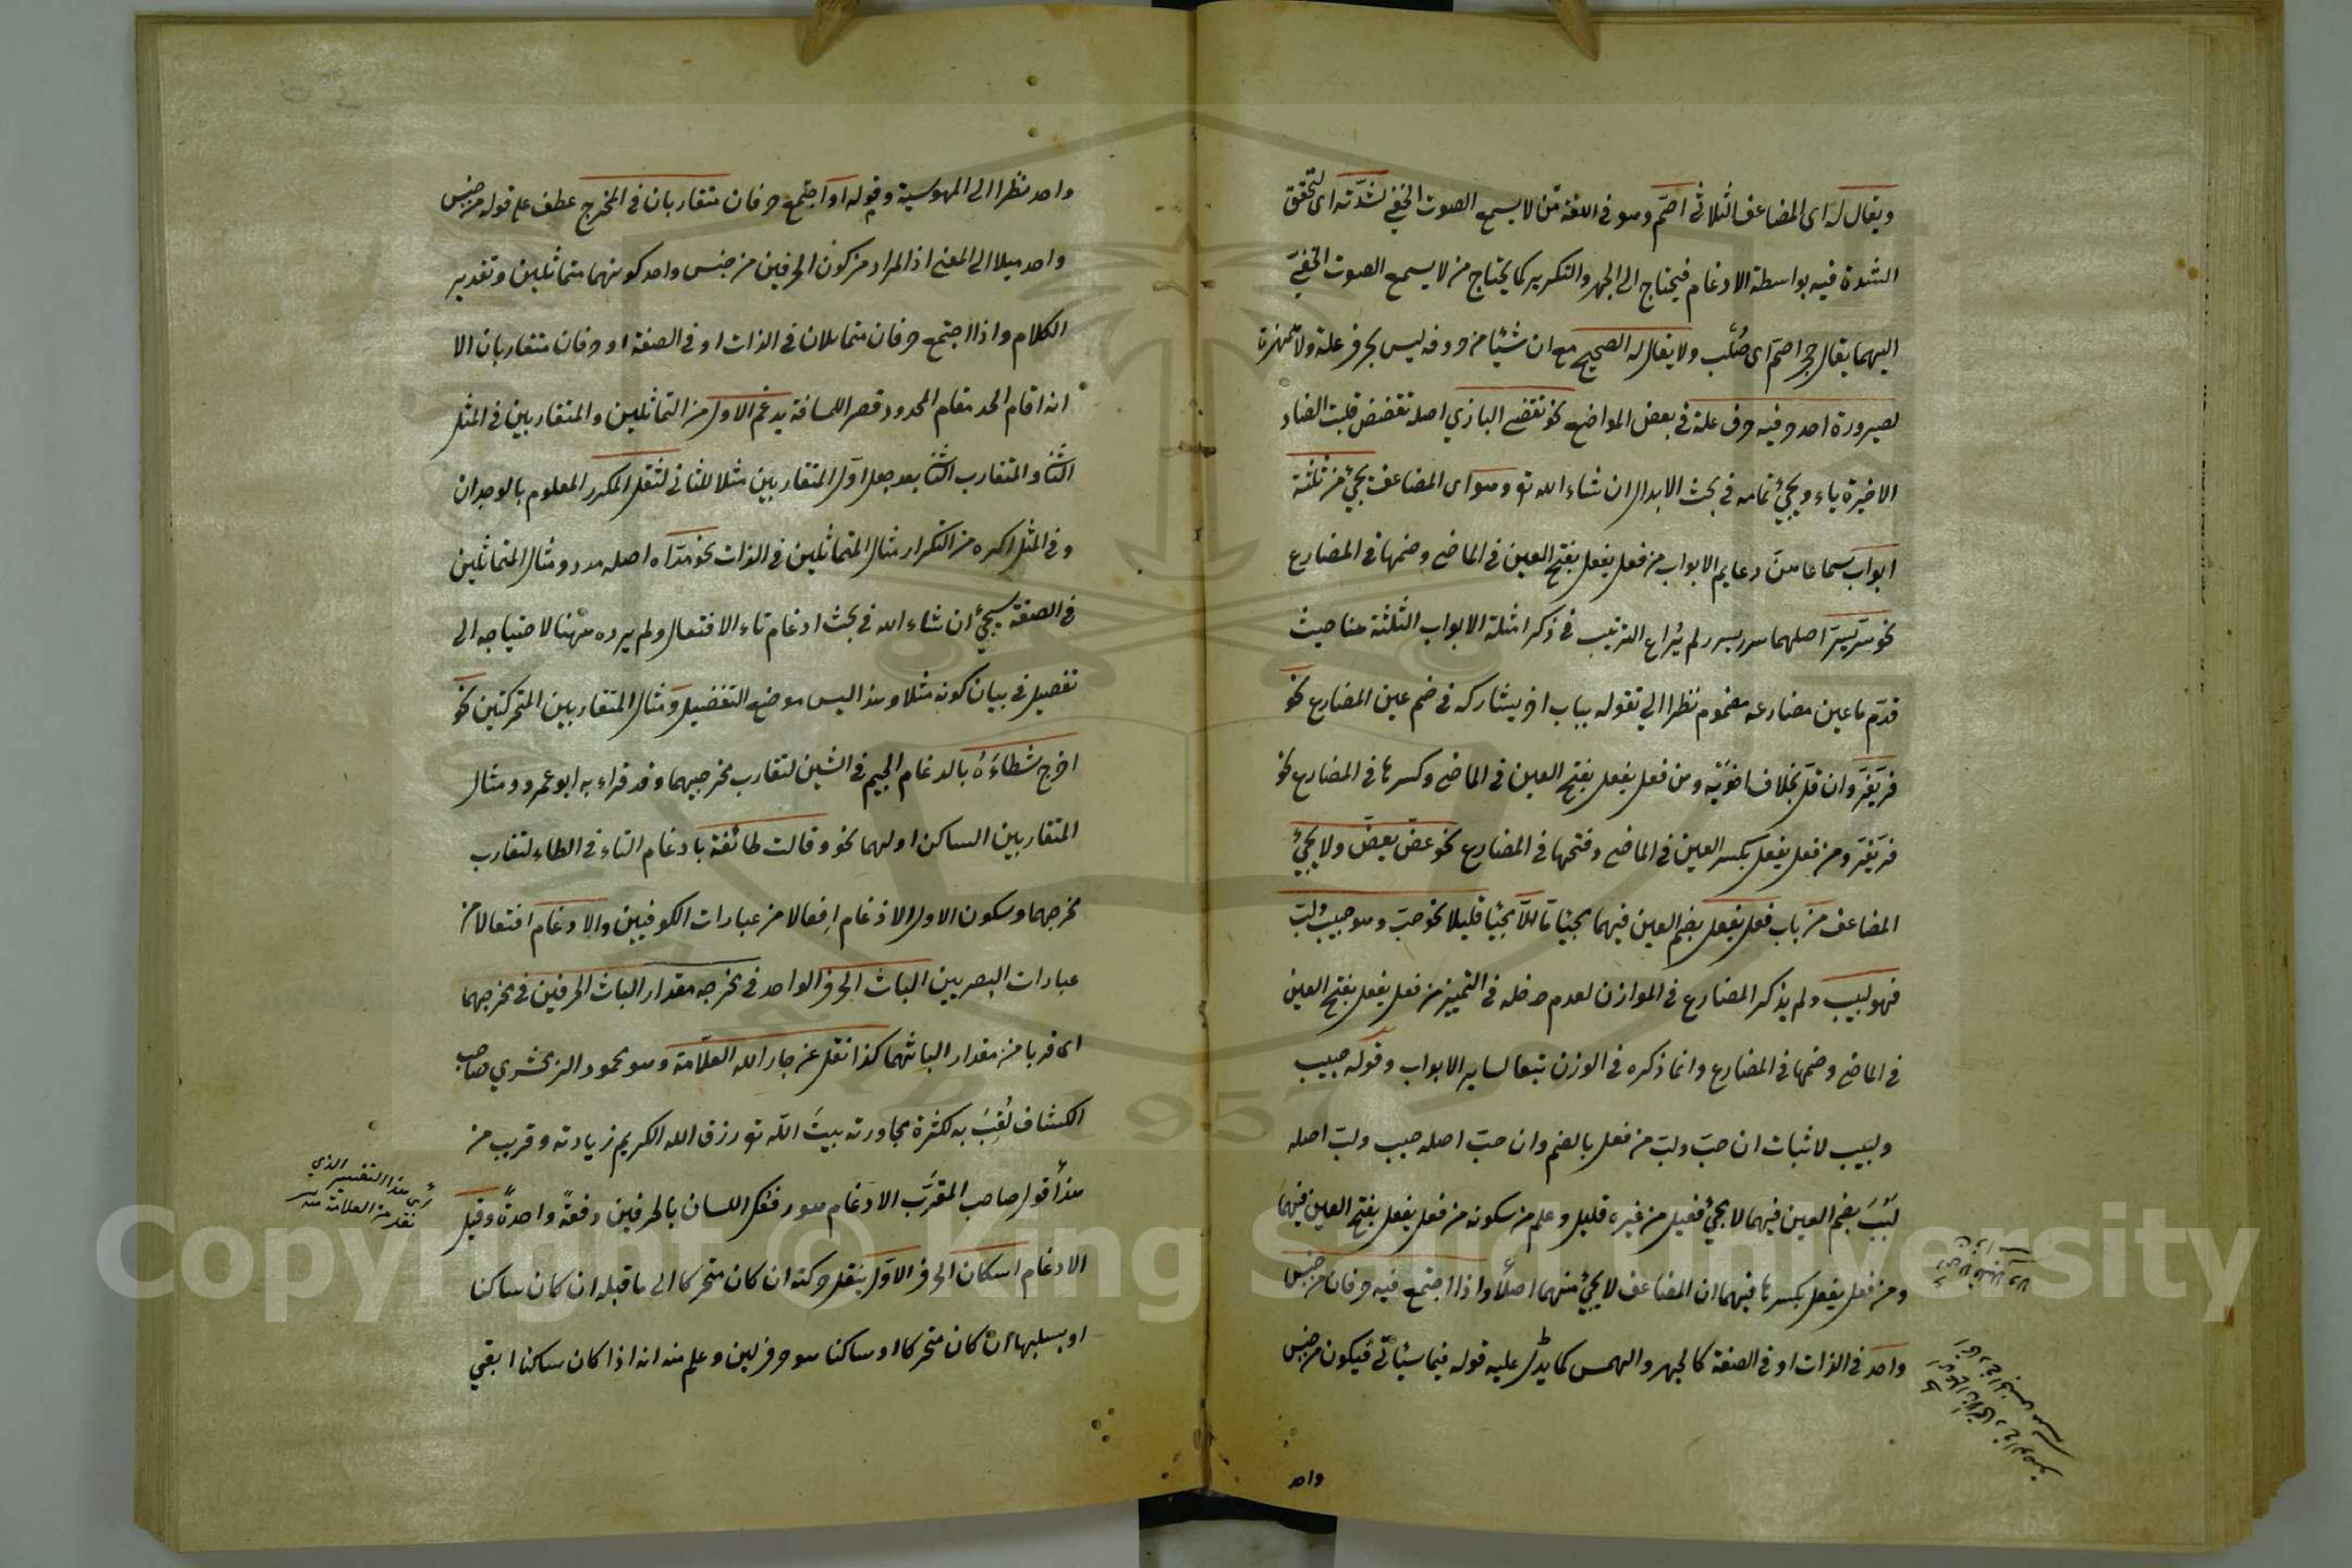 ويقال له اى المضاعف الثلاثي اصم وهو في اللغة من لا يسمع الصوت الخفي لشدته اى لتحقق
الشدة فيه بواسطة الادغام فيحتاج الى الجهر والتكرير كما يحتاج من لا يسمع الصوت الخفي
اليهما يقال حجر اصم اى صلب ولا يقال له الصحيح مع ان شيئا من حروفه ليس بحرف علة ولا همزة
لصيرورة احد حرفيه حرف علة في بعض المواضع نحو تقضى البازي اصله تقضض قلبت الضاد
الاخيرة ياء ويجيئ تمامه في بحث الابدال ان شاء الله تع وهو اى المضاعف يجيئ من ثلثة
ابواب سماعا من دعايم الابواب من فعل يفعل بفتح العين في الماضى وضمها في المضارع
نحو سرّ يسرّ اصلهما سرر يسرر لم يُراع الترتيب في ذكر امثلة الابواب الثلثة هنا حيث
قدّم ما عين مضارعه مضموم نظرا الي تقوله بباب اخر يشاركه في ضم عين المضارع نحو
فرّ يفرّ وان قل بخلاف اخويه ومن فعل يفعل بفتح العين في الماضى وكسرها في المضارع نحو
فرّ يفرّ ومن فعل يفعل بكسر العين في الماضى وفتحها في المضارع نحو عضّ يعضّ ولا يجيئ
المضاعف من باب فعل يفعل بضم العين فيهما مجيئا ما الا مجيئا قليلا نحو حبّ وهو حبيب ولبّ
فهو لبيب ولم يذكر المضارع في الموازن لعدم دخله في التمييز من فعل يفعل بفتح العين
في الماضى وضمها في المضارع وانما ذكره في الوزن تبعا لساير الابواب وقوله حبيب
ولبيب لاثبات ان حبّ ولبّ من فعل بالضم وان حبّ اصله حبب ولبّ اصله
لبُبَ بضم العين فيهما لا يجيئ فعيل من غيره قليل وعلم من سكونه من فعل يفعل بفتح العين فيهما
ومن فعل يفعل بكسرها فيهما ان المضاعف لا يجيئ منهما اصلًا واذا اجتمع فيه حرفان من جنس
واحد في الذات او في الصفة كالجهر والهمس كما يدل عليه قوله فيما سيأتي فيكون من جنس
واحد
واحد نظرا الى المهموسية وقوله او اجتمع حرفان متقاربان في المخرج عطف على قوله من جنس
واحد ميلا الى المعنى اذ المراد من كون الحرفين من جنس واحد كونهما متماثلين وتقدير
الكلام واذا اجتمع حرفان متماثلان في الذات او في الصفة او حرفان متقاربان الا
انه اقام الحد مقام المحدود قصر اللمسافة يدغم الاول من المتماثلين والمتقاربين في المثل
الثا والمتقارب الثا بعد جعل اول المتقاربين مثلا للثاني لثقل المكرر المعلوم بالوجدان
وفي المثل اكره من التكرار مثال المتماثلين في الذات نحو مدّ اه اصله مدد ومثال المتماثلين
في الصفة سيجيئ ان شاء الله في بحث ادغام تاء الافتعال ولم يرده ههنا لاحتياجه الى
تفصيل في بيان كونه مثلا وهذا ليس موضع التفصيل ومثال المتقاربين المتحركتين نحو
اخرج شطاءَهُ بالدغام الجيم في الشين لتقارب مخرجيهما وقد قراء به ابو عمرو ومثال
المتقاربين الساكن اولهما نحو وقالت طائفة بادغام التاء في الطاء لتقارب
مخرجهما وسكون الاول الادغام اِفعالا من عبارات الكوفيين والادغام افتعالا من
عبارات البصريين الباث الحرف الواحد في مخرجه مقدار الباث الحرفين في مخرجهما
اى قربا من مقدار الباثهما كذا نقل عن جار الله العلّامة وهو محمود الزمخشري صاحب
الكشاف لُقِّبَ به لكثرة مجاورته بيتَ اللّه تع رزق الله الكريم زيادته وقريب من
هذا قول صاحب المقرّب الادغام هو رفعك اللسان بالحرفين دفعةً واحدةً وقيل
الادغام اسكان الحرف الاول ينقل حركته ان كان متحركا الى ما قبله ان كان ساكنا
او بسلبها ان كان متحركا او ساكنا هو حرف لين وعلم منه انه اذا كان ساكنا ابقي
هذا التفسير الذي
نقل من العلامة
Copyright © King Saud University